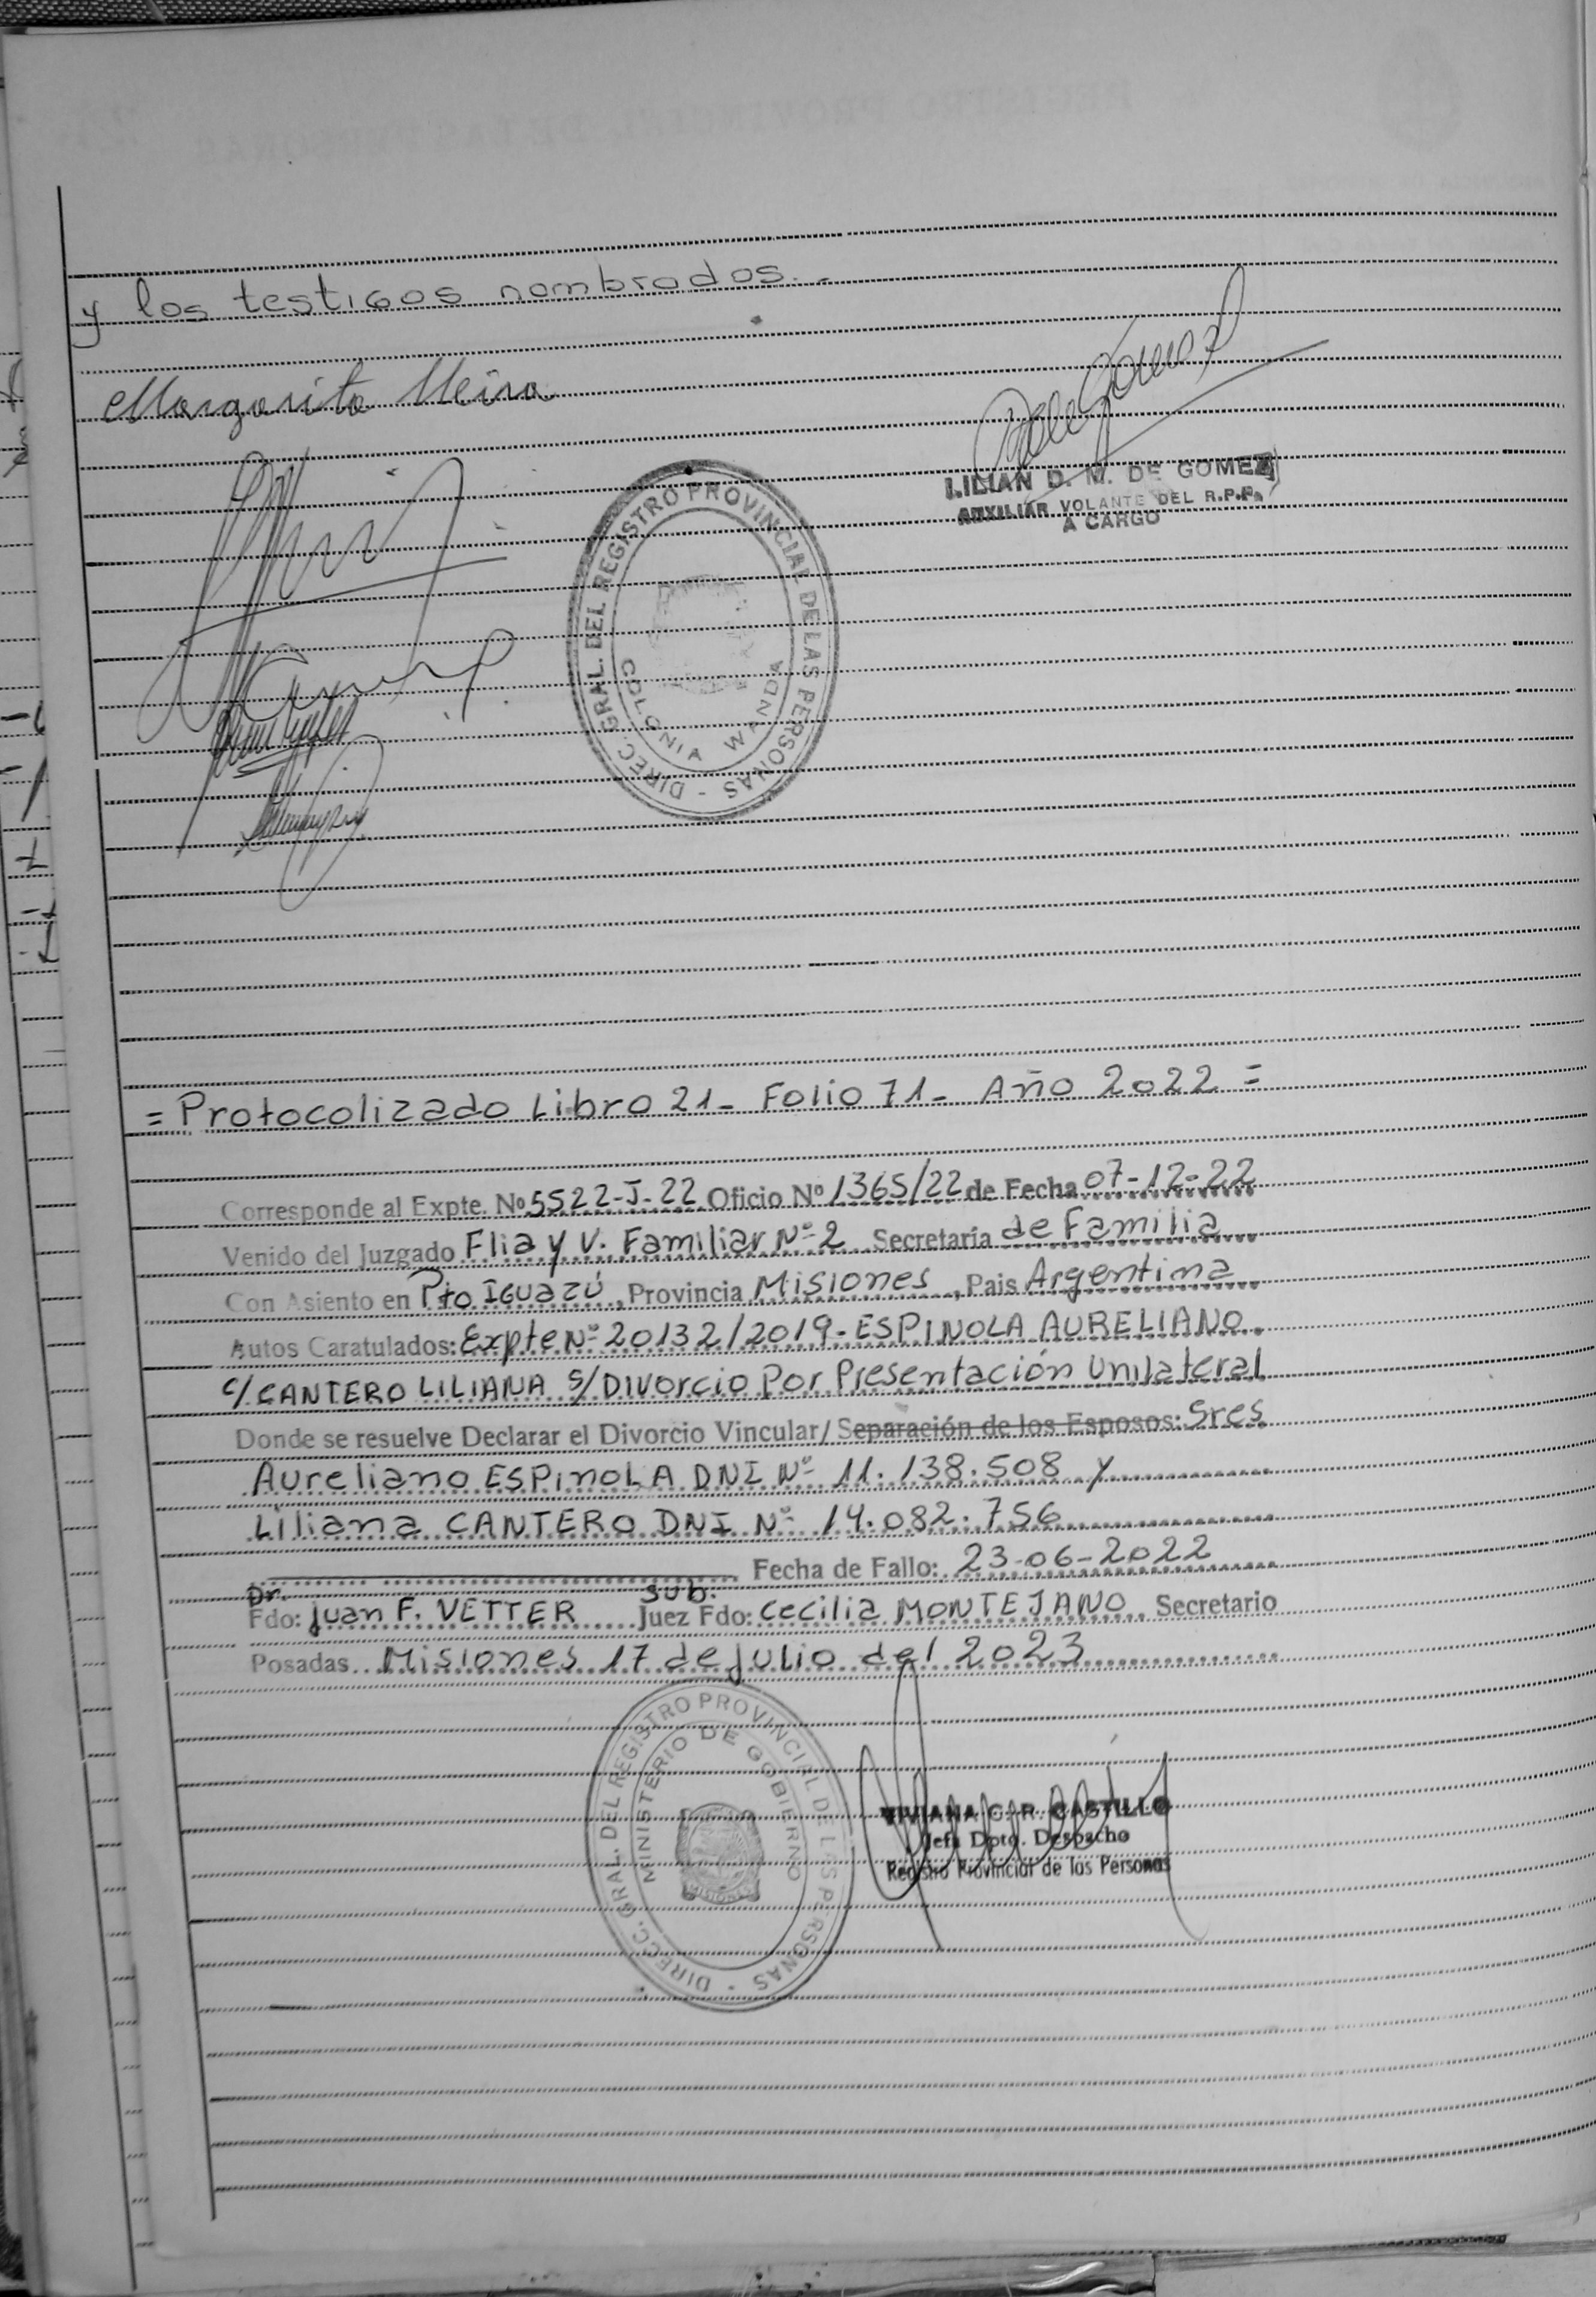 y los testigos nombrados.-
Margarita Meira
LILIAN D. M. DE GOMEZ
AUXILIAR VOLANTE DEL R.P.P.
A CARGO
DIREC. GRAL. DEL REGISTRO PROVINCIAL DE LAS PERSONAS -
COLONIA WANDA
= Protocolizado Libro 21- Folio 71- Año 2022 =
Corresponde al Expte. Nº 5522-J-22 Oficio Nº 1365/22 de Fecha 07-12-22
Venido del Juzgado Flia y V. Familiar Nº 2 Secretaría de Familia
Con Asiento en Pto IGUAZÚ, Provincia Misiones, Pais Argentina
Autos Caratulados: Expte Nº 20132/2019- ESPINOLA AURELIANO
C/ CANTERO LILIANA S/ Divorcio Por Presentación Unilateral
Donde se resuelve Declarar el Divorcio Vincular/ Separación de los Esposos: Sres
Aureliano ESPINOLA DNI Nº 11.138.508 y
Liliana CANTERO DNI Nº 14.082.756
Fecha de Fallo: 23-06-2022
Dr. Sub.
Fdo: Juan F. VETTER Juez Fdo: Cecilia MONTEJANO Secretario
Posadas Misiones 17 de Julio del 2023
DIRECC. GRAL. DEL REGISTRO PROVINCIAL DE LAS PERSONAS -
MINISTERIO DE GOBIERNO
MISIONES
VIVIANA G. R. CASTILLO
Jefa Dpto. Despacho
Registro Provincial de las Personas